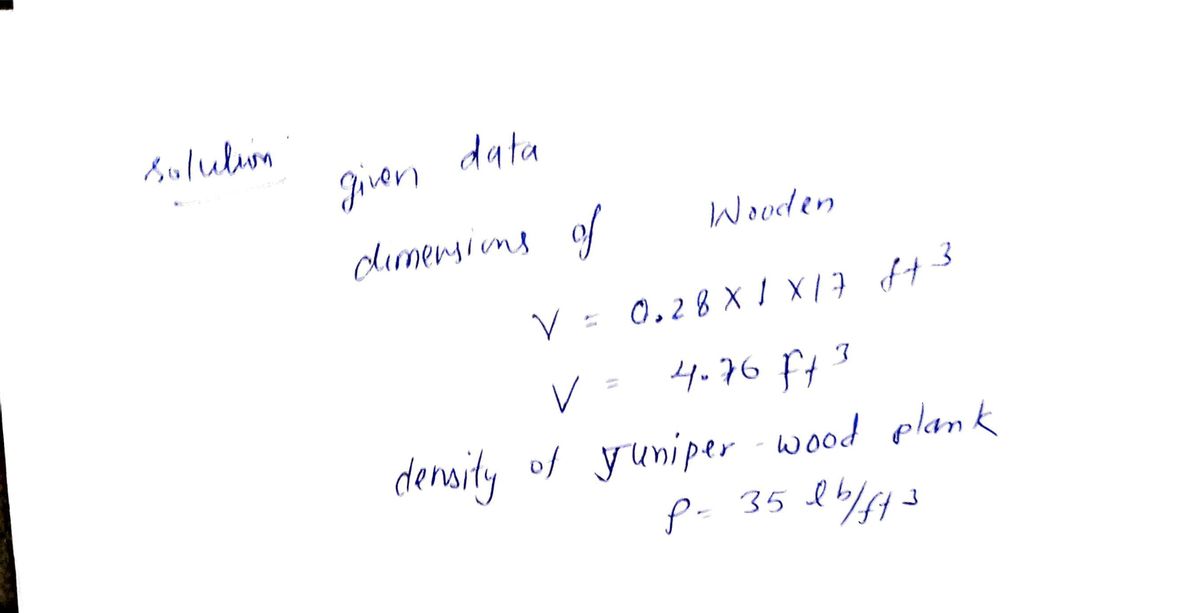 solution
given data
dimensions of Wooden
V = 0.28 X 1 X 17 ft³
V = 4.76 ft³
density of Juniper-wood plank
ρ = 35 lb/ft³